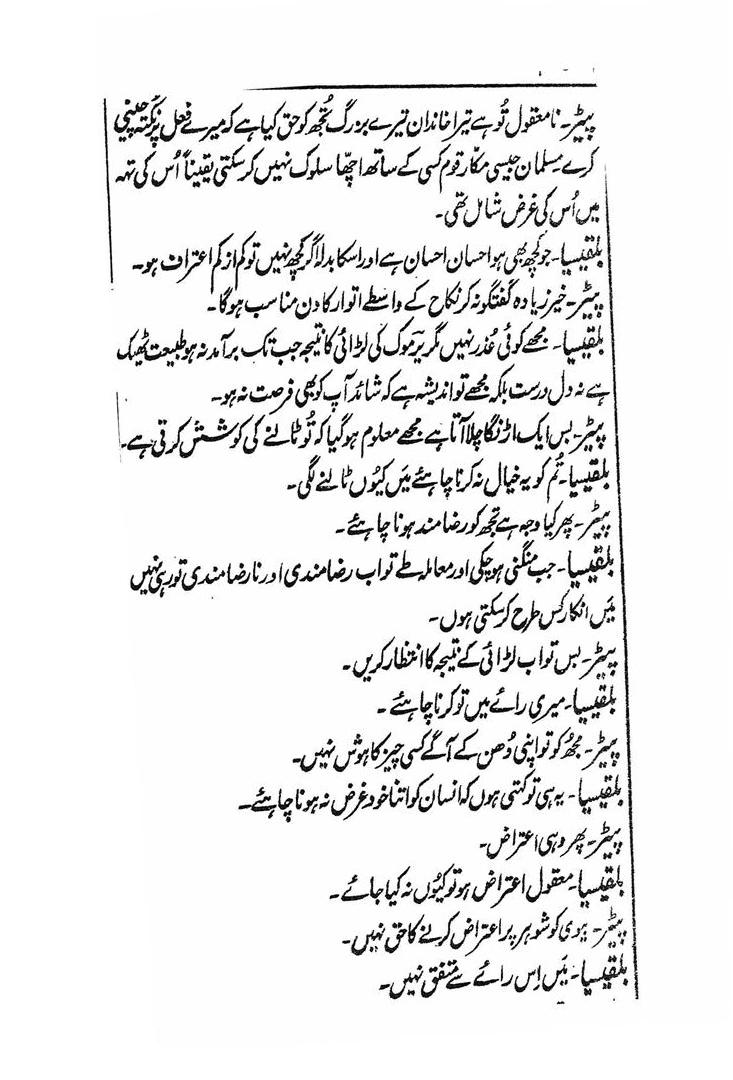 پیٹر۔ نامعقول تُو ہے تیرا خاندان تیرے بزرگ تُجھ کو حق کیا ہے کہ میرے فعل پر نکتہ چینی
کرے مسلمان جیسی مکار قوم کسی کے ساتھ اچھّا سلوک نہیں کر سکتی یقیناً اُس کی تہہ
میں اُس کی غرض شامل تھی۔
بلقیسیا۔ جو کچھ بھی ہو احسان احسان ہے اور اسکا بدلا اگر کچھ نہیں تو کم از کم اعتراف ہو۔
پیٹر۔ خیر زیادہ گفتگو نہ کر نکاح کے واسطے اتوار کا دن مناسب ہوگا۔
بلقیسیا۔ مجھے کوئی عُذر نہیں مگر یرموک کی لڑائی کا نتیجہ جب تک برآمد نہ ہو طبیعت ٹھیک
ہے نہ دل درست بلکہ مجھے تو اندیشہ ہے کہ شائد آپ کو بھی فرصت نہ ہو۔
پیٹر۔ بس ایک اڑنگا چلا آتا ہے مجھے معلوم ہوگیا کہ تُو ٹالنے کی کوشش کرتی ہے۔
بلقیسیا۔ تُم کو یہ خیال نہ کرنا چاہئے میں کیُوں ٹالنے لگی۔
پیٹر۔ پھر کیا وجہ ہے تجھ کو رضامند ہونا چاہئے۔
بلقیسیا۔ جب منگنی ہوچکی اور معاملہ طے تو اب رضامندی اور نارضامندی تو رہی نہیں
میں انکار کس طرح کر سکتی ہوں۔
پیٹر۔ بس تو اب لڑائی کے نتیجہ کا انتظار کریں۔
بلقیسیا۔ میری رائے میں تو کرنا چاہئے۔
پیٹر۔ مجھُ کو تو اپنی دُھن کے آگے کسی چیز کا ہوش نہیں۔
بلقیسیا۔ یہ ہی تو کہتی ہوں کہ انسان کو اتنا خود غرض نہ ہونا چاہئے۔
پیٹر۔ پھر وہی اعتراض۔
بلقیسیا۔ معقول اعتراض ہو تو کیُوں نہ کیا جائے۔
پیٹر۔ بیوی کو شوہر پر اعتراض کرنے کا حق نہیں۔
بلقیسیا۔ میں اِس رائے سے متفق نہیں۔